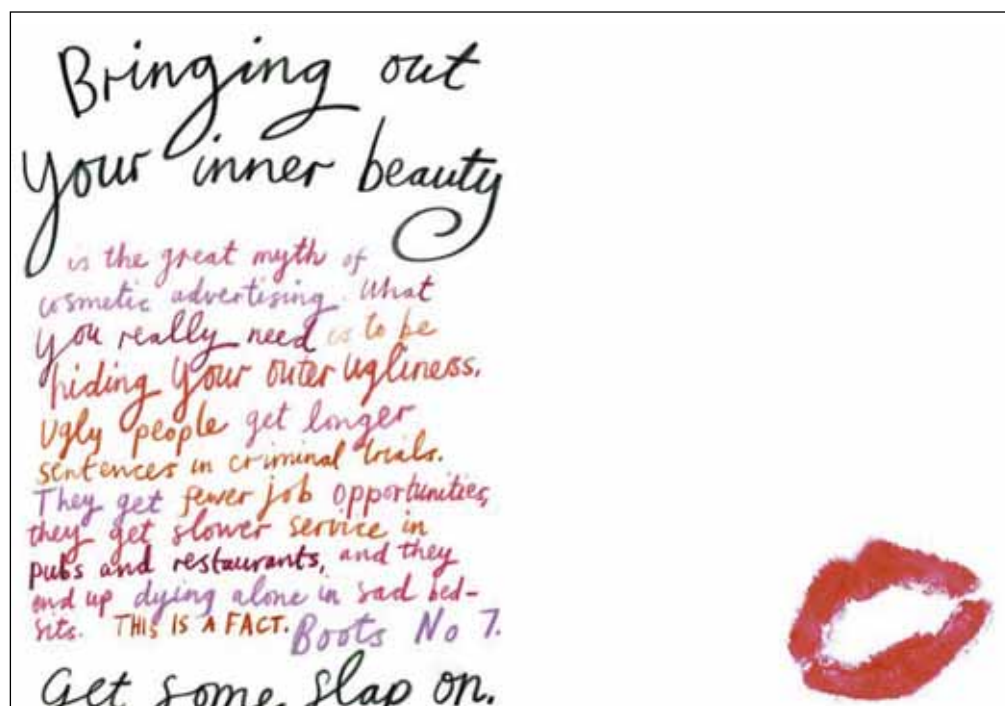 Bringing out
your inner beauty
is the great myth of
cosmetic advertising. What
you really need is to be
hiding your outer ugliness.
Ugly people get longer
sentences in criminal trials.
They get fewer job opportunities,
they get slower service in
pubs and restaurants, and they
end up dying alone in sad bed-
sits. THIS IS A FACT. Boots No 7.
Get some slap on.